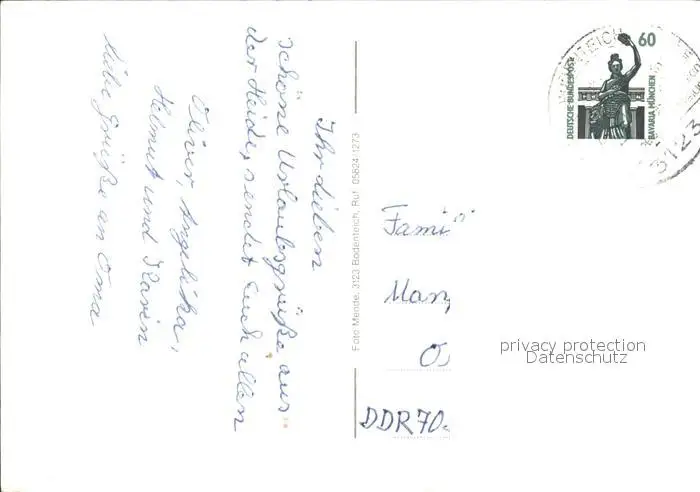 Ihr Lieben
Schöne Urlaubsgrüße aus
der Heide, sendet Euch allen
Oliver, Angelika,
Helmut und Karin
Liebe Grüße an Oma
Foto Mende, 3123 Bodenteich, Ruf 05824-1273
60
DEUTSCHE BUNDESPOST
BAVARIA MÜNCHEN
3123
Fami
Man
O
DDR 70
privacy protection
Datenschutz